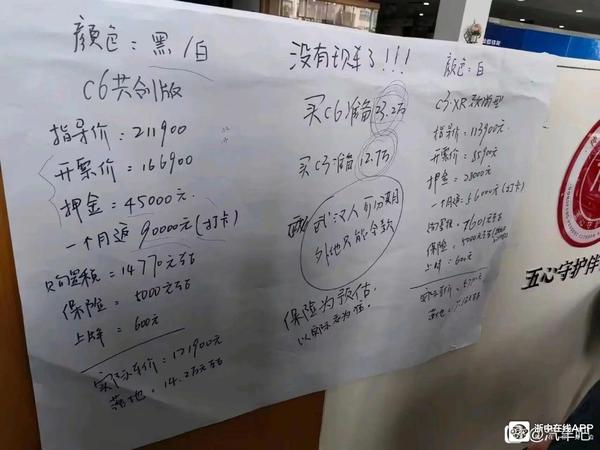 颜色：黑/白
C6共创版
指导价：211900
开票价：166900
押金：45000元
一个月返90000元(打卡)
购置税=14770元左右
保险=5000元左右
上牌=600元
实际车价：121900元
落地：14.2万元左右
没有现车了!!!
买C6准备23.2万
买C3准备12.7万
武汉人可分期
外地只能全款
保险为预估,
以实际为准.
颜色：白
C3-XR
指导价：113900元
开票价：85900元
押金：28000元
一个月返：56000元(打卡)
购置税：7601元左右
上牌：600元
五心守护伴
浙中在线APP
@汽车吧